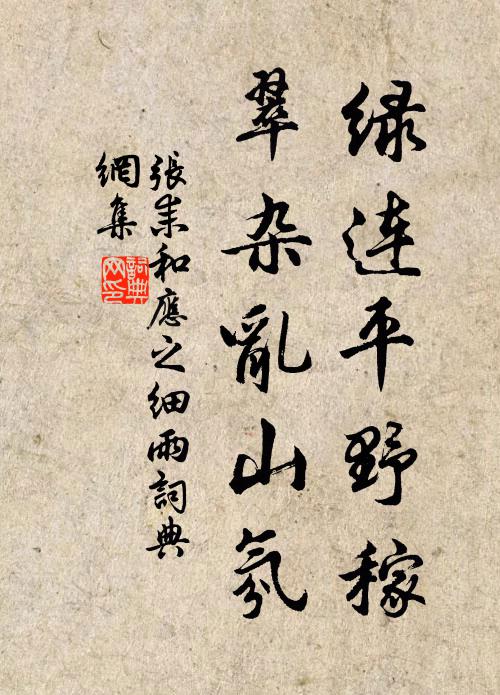 绿连平野稼
翠杂亂山氛
張耒和應之细雨詞典
網集
詞典
网印